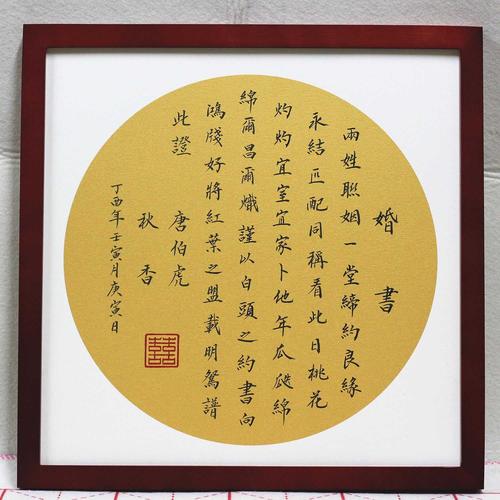 婚書
兩姓聯姻一堂締約良緣
永結匹配同稱看此日桃花
灼灼宜室宜家卜他年瓜瓞綿
綿爾昌爾熾謹以白頭之約書向
鴻牋好將紅葉之盟載明鴛譜
此證 唐伯虎
秋香
丁酉年壬寅月庚寅日
囍